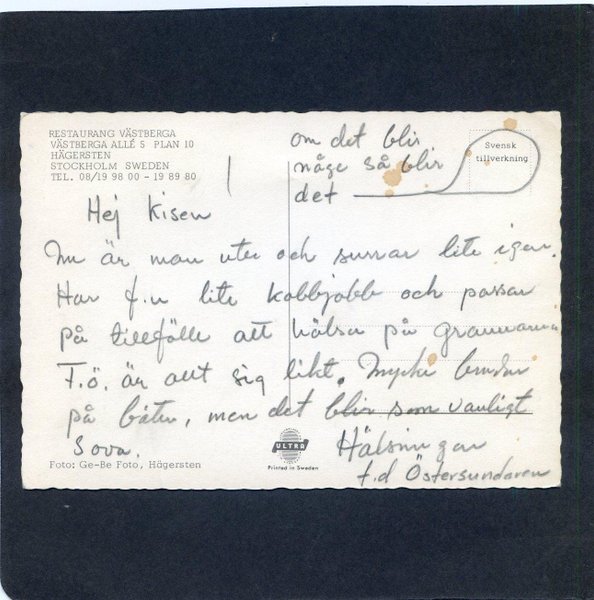 RESTAURANG VÄSTBERGA
VÄSTBERGA ALLÉ 5 PLAN 10
HÄGERSTEN
STOCKHOLM SWEDEN
TEL. 08/19 98 00 - 19 89 80
om det blir
någe så blir
det
Svensk
tillverkning
Hej Kisen
Nu är man ute och surrar lite igen.
Har f.n lite kabbjobb och passar
på tillfälle att hälsa på grannarna
F.ö. är allt sig likt. Mycke brudar
på båten, men det blir som vanligt
Sova.
Hälsningar
f.d Östersundaren
Foto: Ge-Be Foto, Hägersten
ULTRA
Printed in Sweden